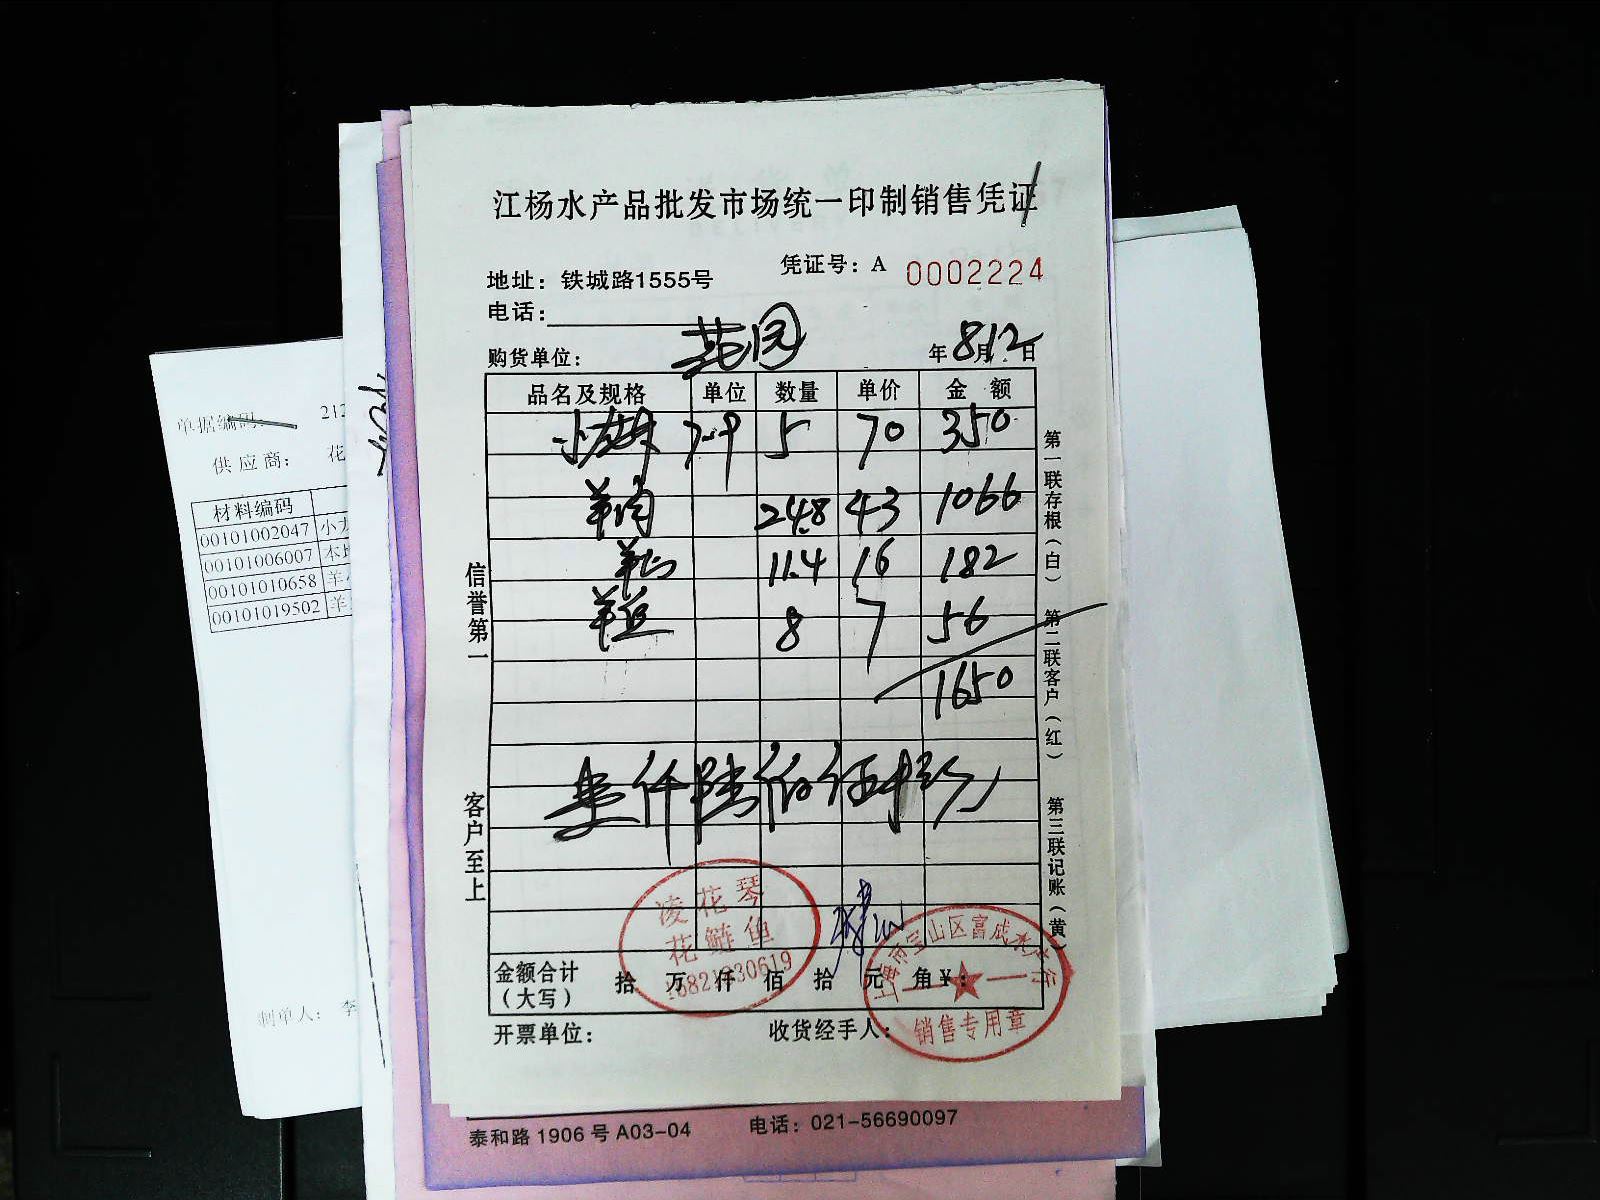 江杨水产品批发市场统一印制销售凭证
凭证号：A 0002224
地址：铁城路1555号
电话：
购货单位： 花园 年8月12日
品名及规格 单位 数量 单价 金额
小龙虾 7-9 5 70 350
羊肉 24.8 43 1066
11.4 16 182
8 7 56
1650
壹仟陆佰伍拾
金额合计（大写） 拾 万 仟 佰 拾 元 角 ¥：
开票单位： 收货经手人：
信誉第一
客户至上
第一联存根（白）
第二联客户（红）
第三联记账（黄）
凌花琴
花鲢鱼
上海市宝山区富成水产行
销售专用章
泰和路1906号A03-04 电话：021-56690097
单据编码： 212
供应商： 花
材料编码
00101002047 小龙
00101006007 本地
00101010658 羊
00101019502 羊
制单人： 李